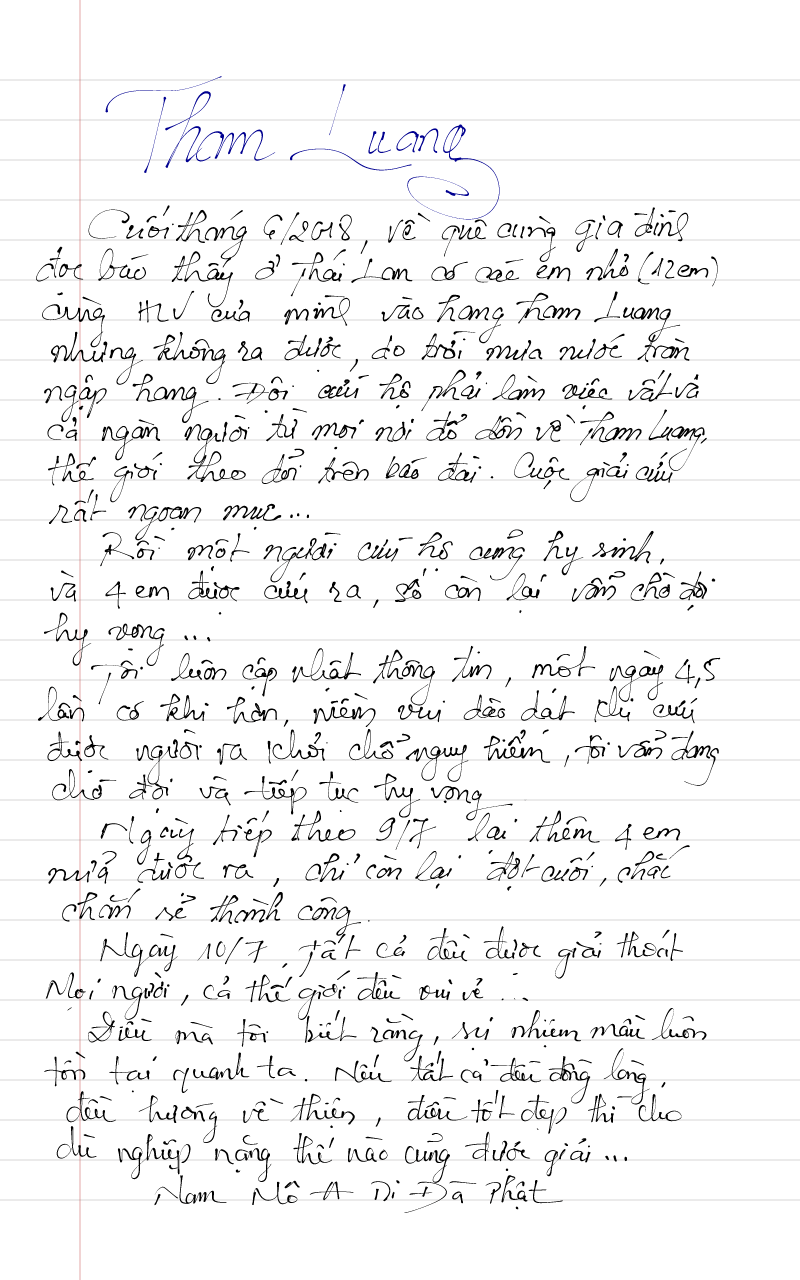 Tham Luang
Cuối tháng 6/2018, về quê cùng gia đình
đọc báo thấy ở Thái Lan có các em nhỏ (12em)
cùng HLV của mình vào hang Tham Luang
nhưng không ra được, do trời mưa nước tràn
ngập hang. Đội cứu hộ phải làm việc vất vả
cả ngàn người từ mọi nơi đổ dồn về Tham Luang,
thế giới theo dỏi trên báo đài. Cuộc giải cứu
rất ngoạn mục...
Rồi một người cứu hộ cũng hy sinh,
và 4 em được cứu ra, số còn lại vẩn chờ đợi
hy vọng ...
Tôi luôn cập nhật thông tin, một ngày 4,5
lần có khi hơn, niềm vui dào dạt khi cứu
được người ra khỏi chổ nguy hiểm, tôi vẩn đang
chờ đợi và tiếp tục hy vọng
Ngày tiếp theo 9/7 lại thêm 4 em
nửa được ra, chỉ còn lại đợt cuối, chắc
chắn sẻ thành công.
Ngày 10/7, Tất cả đều được giải thoát
Mọi người, cả thế giới đều vui vẻ ...
Điều mà tôi biết rằng, sự nhiệm mầu luôn
tồn tại quanh ta. Nếu tất cả đều đồng lòng,
đều hướng về thiện, điều tốt đẹp thì cho
dù nghiệp nặng thế nào cũng được giải ...
Nam Mô A Di Đà Phật